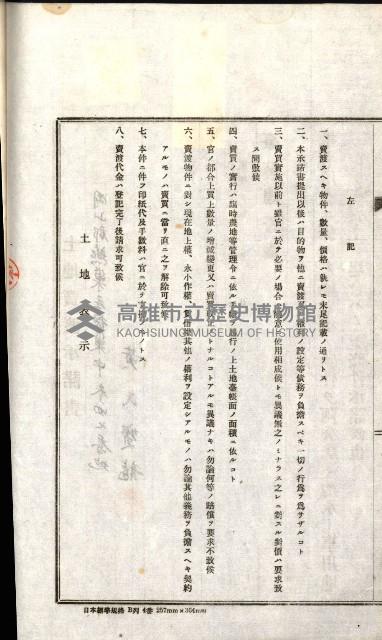 左記
一、賣渡スヘキ物件、數量、價格ハ孰レモ末尾記載ノ通リトス
二、本承諾書提出以後ハ目的物ヲ他ニ賣渡シ權利ノ設定等債務ヲ負擔スベキ一切ノ行爲ヲ爲サザルコト
三、賣買實施以前ト雖官ニ於テ必要ノ場合ハ隨意ニ使用相成候トモ異議無之ノミナラス之レニ對スル對價ハ要求致
ス間敷候
四、賣買ノ實行ハ臨時農地等管理令ニ依ル 施行ノ上土地臺帳面ノ面積ニ依ルコト
五、官ノ都合上買上數量ノ增減變更又ハ賣買 トナルコトアルモ異議ナキハ勿論何等ノ賠償ヲ要求不致候
六、賣渡物件ニ對シ現在地上權、永小作權、賃借權其他ノ權利ヲ設定シアルモノハ勿論其他義務ヲ負擔スヘキ契約
アルモノハ賣買ニ當リ直ニ之ヲ解除可致候
七、本件ニ伴フ印紙代及手數料ハ官ニ於テ負擔スルモノトス
八、賣渡代金ハ登記完了後請求可致候
土地表示
高雄市立歷史博物館
KAOHSIUNG MUSEUM OF HISTORY
日本標準規格 B列 4番 257mm×364mm